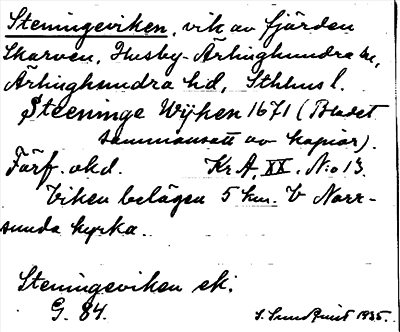 Steningeviken, vik av fjärden
Skarven, Husby-Ärlinghundra sn,
Ärlinghundra hd, Sthlms l.
Steeninge Wijken 1671 (Bladet
sammansatt av kopior).
Förf. okd. Kr A, XX. N:o 13.
Viken belägen 5 km. V Norr-
sunda kyrka.
Steningeviken ek.
G. 84. S. Sundquist 1935.